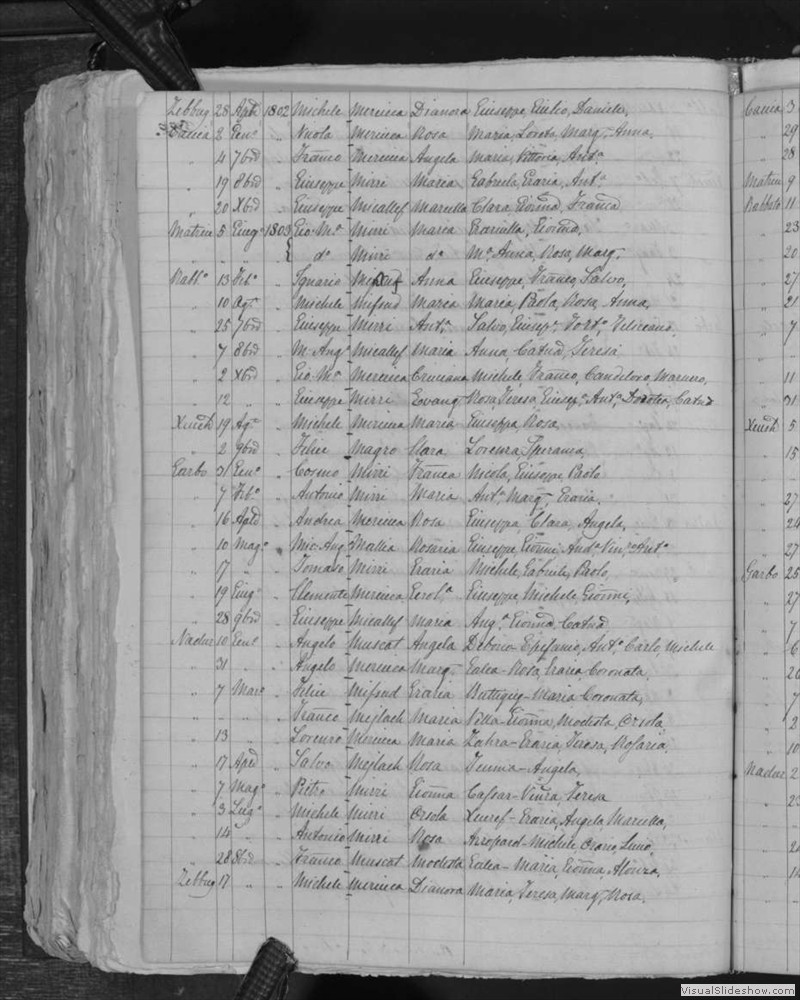 Zebbug 28 Aple 1802 Michele Mercieca Dianora Giuseppe, Giulio, Daniele,
Caccia 2 Genº " Nicola Mercieca Rosa Maria, Loreta, Margª, Anna,
" 4 7bre " Franco Mercieca Angela Maria, Vittoria, Antª
" 19 8bre " Giuseppe Mizzi Maria Gabriela, Grazia, Antª
" 20 Xbre " Giuseppe Micallef Marcella Clara, Gioña, Franca
Matrice 5 Giugº 1803 Gio. Mª Mizzi Maria Graziella, Gioña,
dº Mizzi dª Mª Anna, Rosa, Margª
Rabbº 13 Febº " Ignazio Anna Giuseppe, Franco, Salvo,
" 10 Agº " Michele Mifsud Maria Maria, Paola, Rosa, Anna,
" 25 7bre " Giuseppe Mizzi Antª Salvo, Giusepe,
" 7 8bre " M. Angº Micallef Maria Anna Catña, Teresa
" 2 Xbre " Gio. Mª Mercieca Michele, Franco, Candeloro,
" 12 " " Giuseppe Mizzi Evangª Rosa, Teresa, Giusepe, Antª, Dorotea, Catña
Xeuch 19 Agº " Michele Mercieca Maria Giuseppa, Rosa,
" 2 9bre " Felice Magro Clara Lorenza, Speranza,
Garbo 31 Genº " Cosmo Mizzi Franca Nicola, Giuseppe, Paolo
" 7 Febº " Antonio Mizzi Maria Antª, Margª, Grazia,
" 16 Aple " Andrea Mercieca Rosa Giuseppa, Clara, Angela,
" 10 Magº " Mic. Ang. Mallia Rosaria Giuseppe, Gioñi, Andª, Vinº, Antº
" 17 " " Tomaso Mizzi Grazia Michele, Gabriele, Paolo,
" 19 Giugº " Clemente Mercieca Gerolª Giuseppe, Michele, Gioñi,
" 28 9bre " Giuseppe Micallef Maria Angª, Gioña, Catña
Nadur 10 Genº " Angelo Muscat Angela Debono - Epifanio, Antº, Carlo, Michele
" 31 " " Angelo Mercieca Margª Galea - Rosa, Grazia, Coronata,
" 7 Marº " Felice Mifsud Grazia Buttigieg - Maria Coronata,
" " " " Franco Mejlach Maria Vella - Gioña, Modesta, Orsola
" 13 " " Lorenzo Mercieca Maria Zahra - Grazia, Teresa, Rosaria,
" 17 Aple " Salvo Mejlach Rosa - Angela,
" 7 Magº " Pietro Mizzi Gioña Cassar - Teresa
" 3 Lugº " Michele Mizzi Orsola Xerref - Grazia, Angela, Marcella,
" 14 " " Antonio Mizzi Rosa - Michele,
" 28 8bre " Franco Muscat Modesta Galea - Maria, Gioña,
Zebbug 17 " " Michele Mercieca Dianora Maria, Teresa, Margª, Rosa
Caccia 3
" 29
" 28
Matrice 9
Rabbato 11
" 23
" 20
" 27
" 21
" 7
" 11
" 31
Xeuch 5
" 15
" 27
" 24
" 27
Garbo 25
" 27
" 7
" 6
" 20
" 7
" 2
" 10
Nadur 2
" 23
" 24
" 14
VisualSlideshow.com